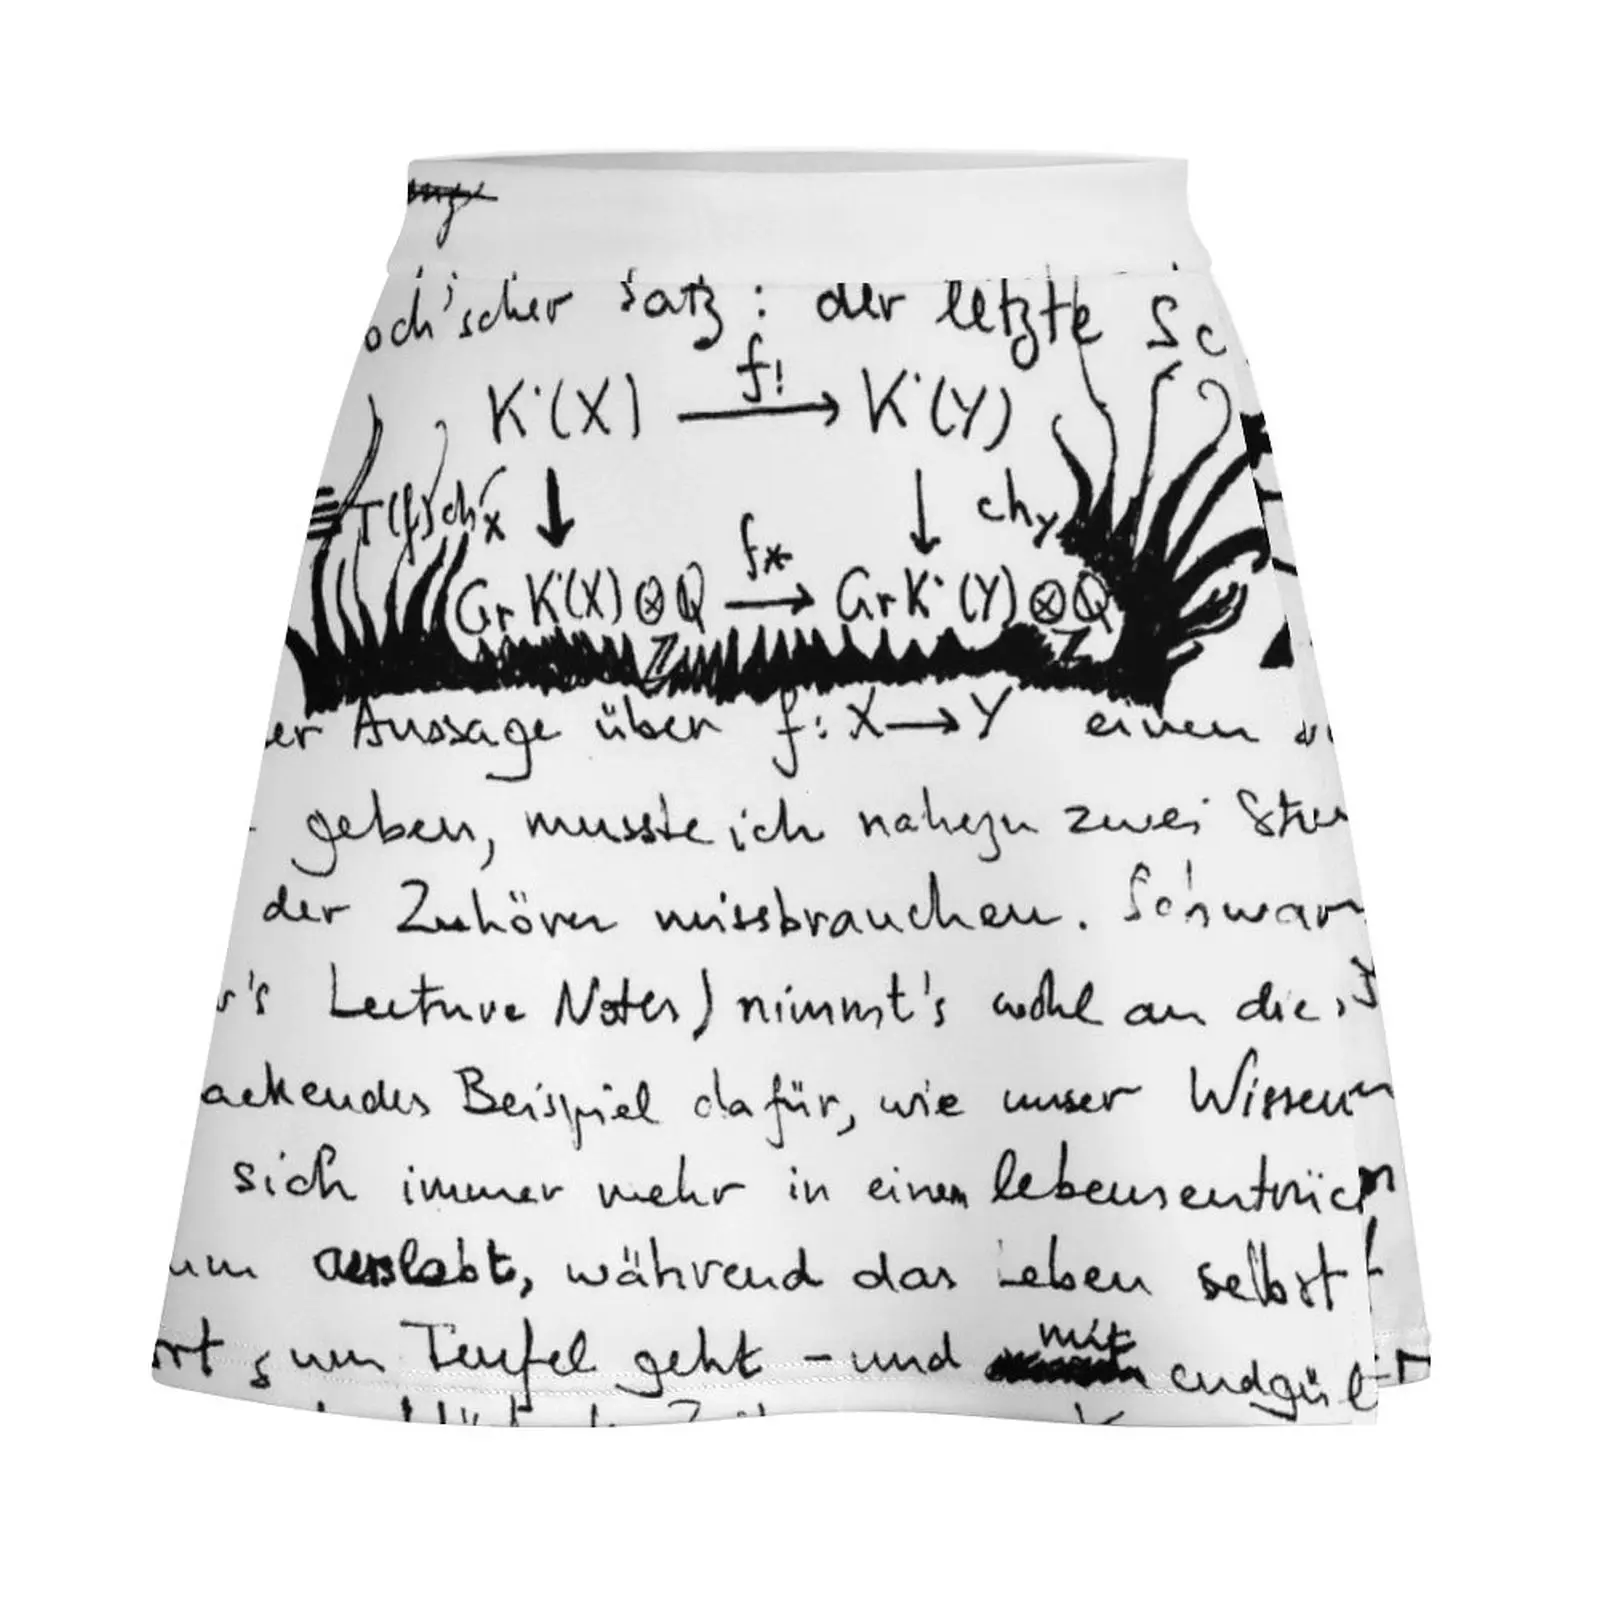 och'scher Satz: der letzte Sc
K˙(X) f! → K˙(Y)
T(f)ch X ↓ ↓ ch_Y
Gr K˙(X) ⊗ ℚ f* → Gr K˙(Y) ⊗ ℚ
ℤ ℤ
er Aussage über f: X → Y einen
geben, musste ich nahezu zwei Stu
der Zuhörer missbrauchen. Schwar
r's Lecture Notes) nimmt's wohl an die
ackendes Beispiel dafür, wie unser Wissen
sich immer mehr in einem lebensentrüc
um auslebt, während das Leben selbst
ort zum Teufel geht - und mit endgül